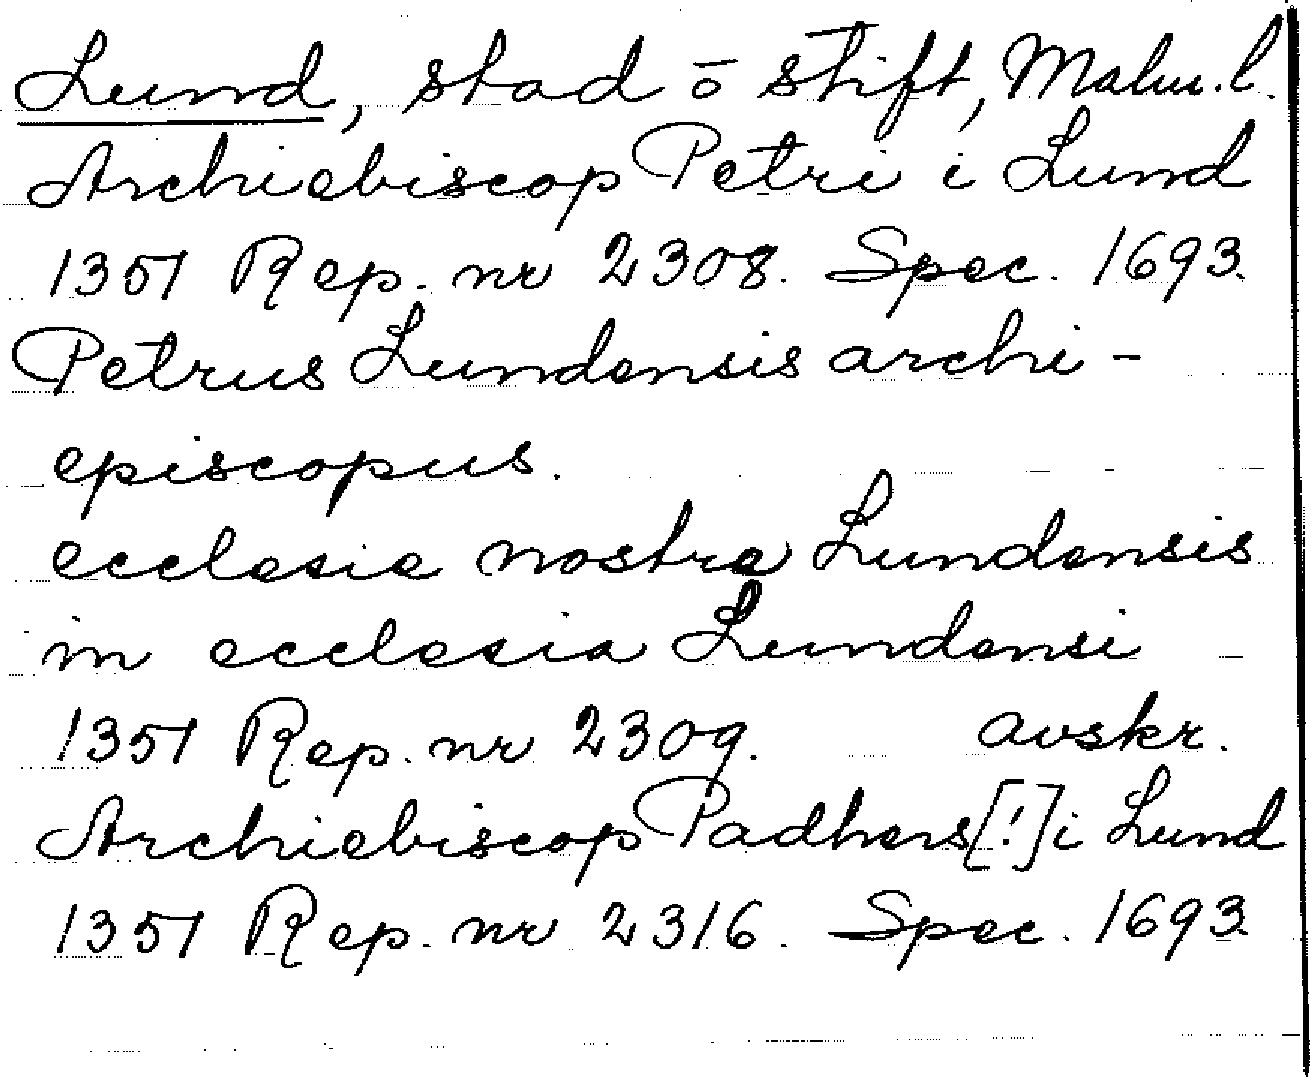 Lund, stad ō stift, Malm. l.
Archiebiscop Petri i Lund
1351 Rep. nr 2308. Spec. 1693.
Petrus Lundensis archi-
episcopus.
ecclesie nostre Lundensis
in ecclesia Lundensi
1351 Rep. nr 2309. avskr.
Archiebiscop Padhers [!] i Lund
1351 Rep. nr 2316. Spec. 1693.